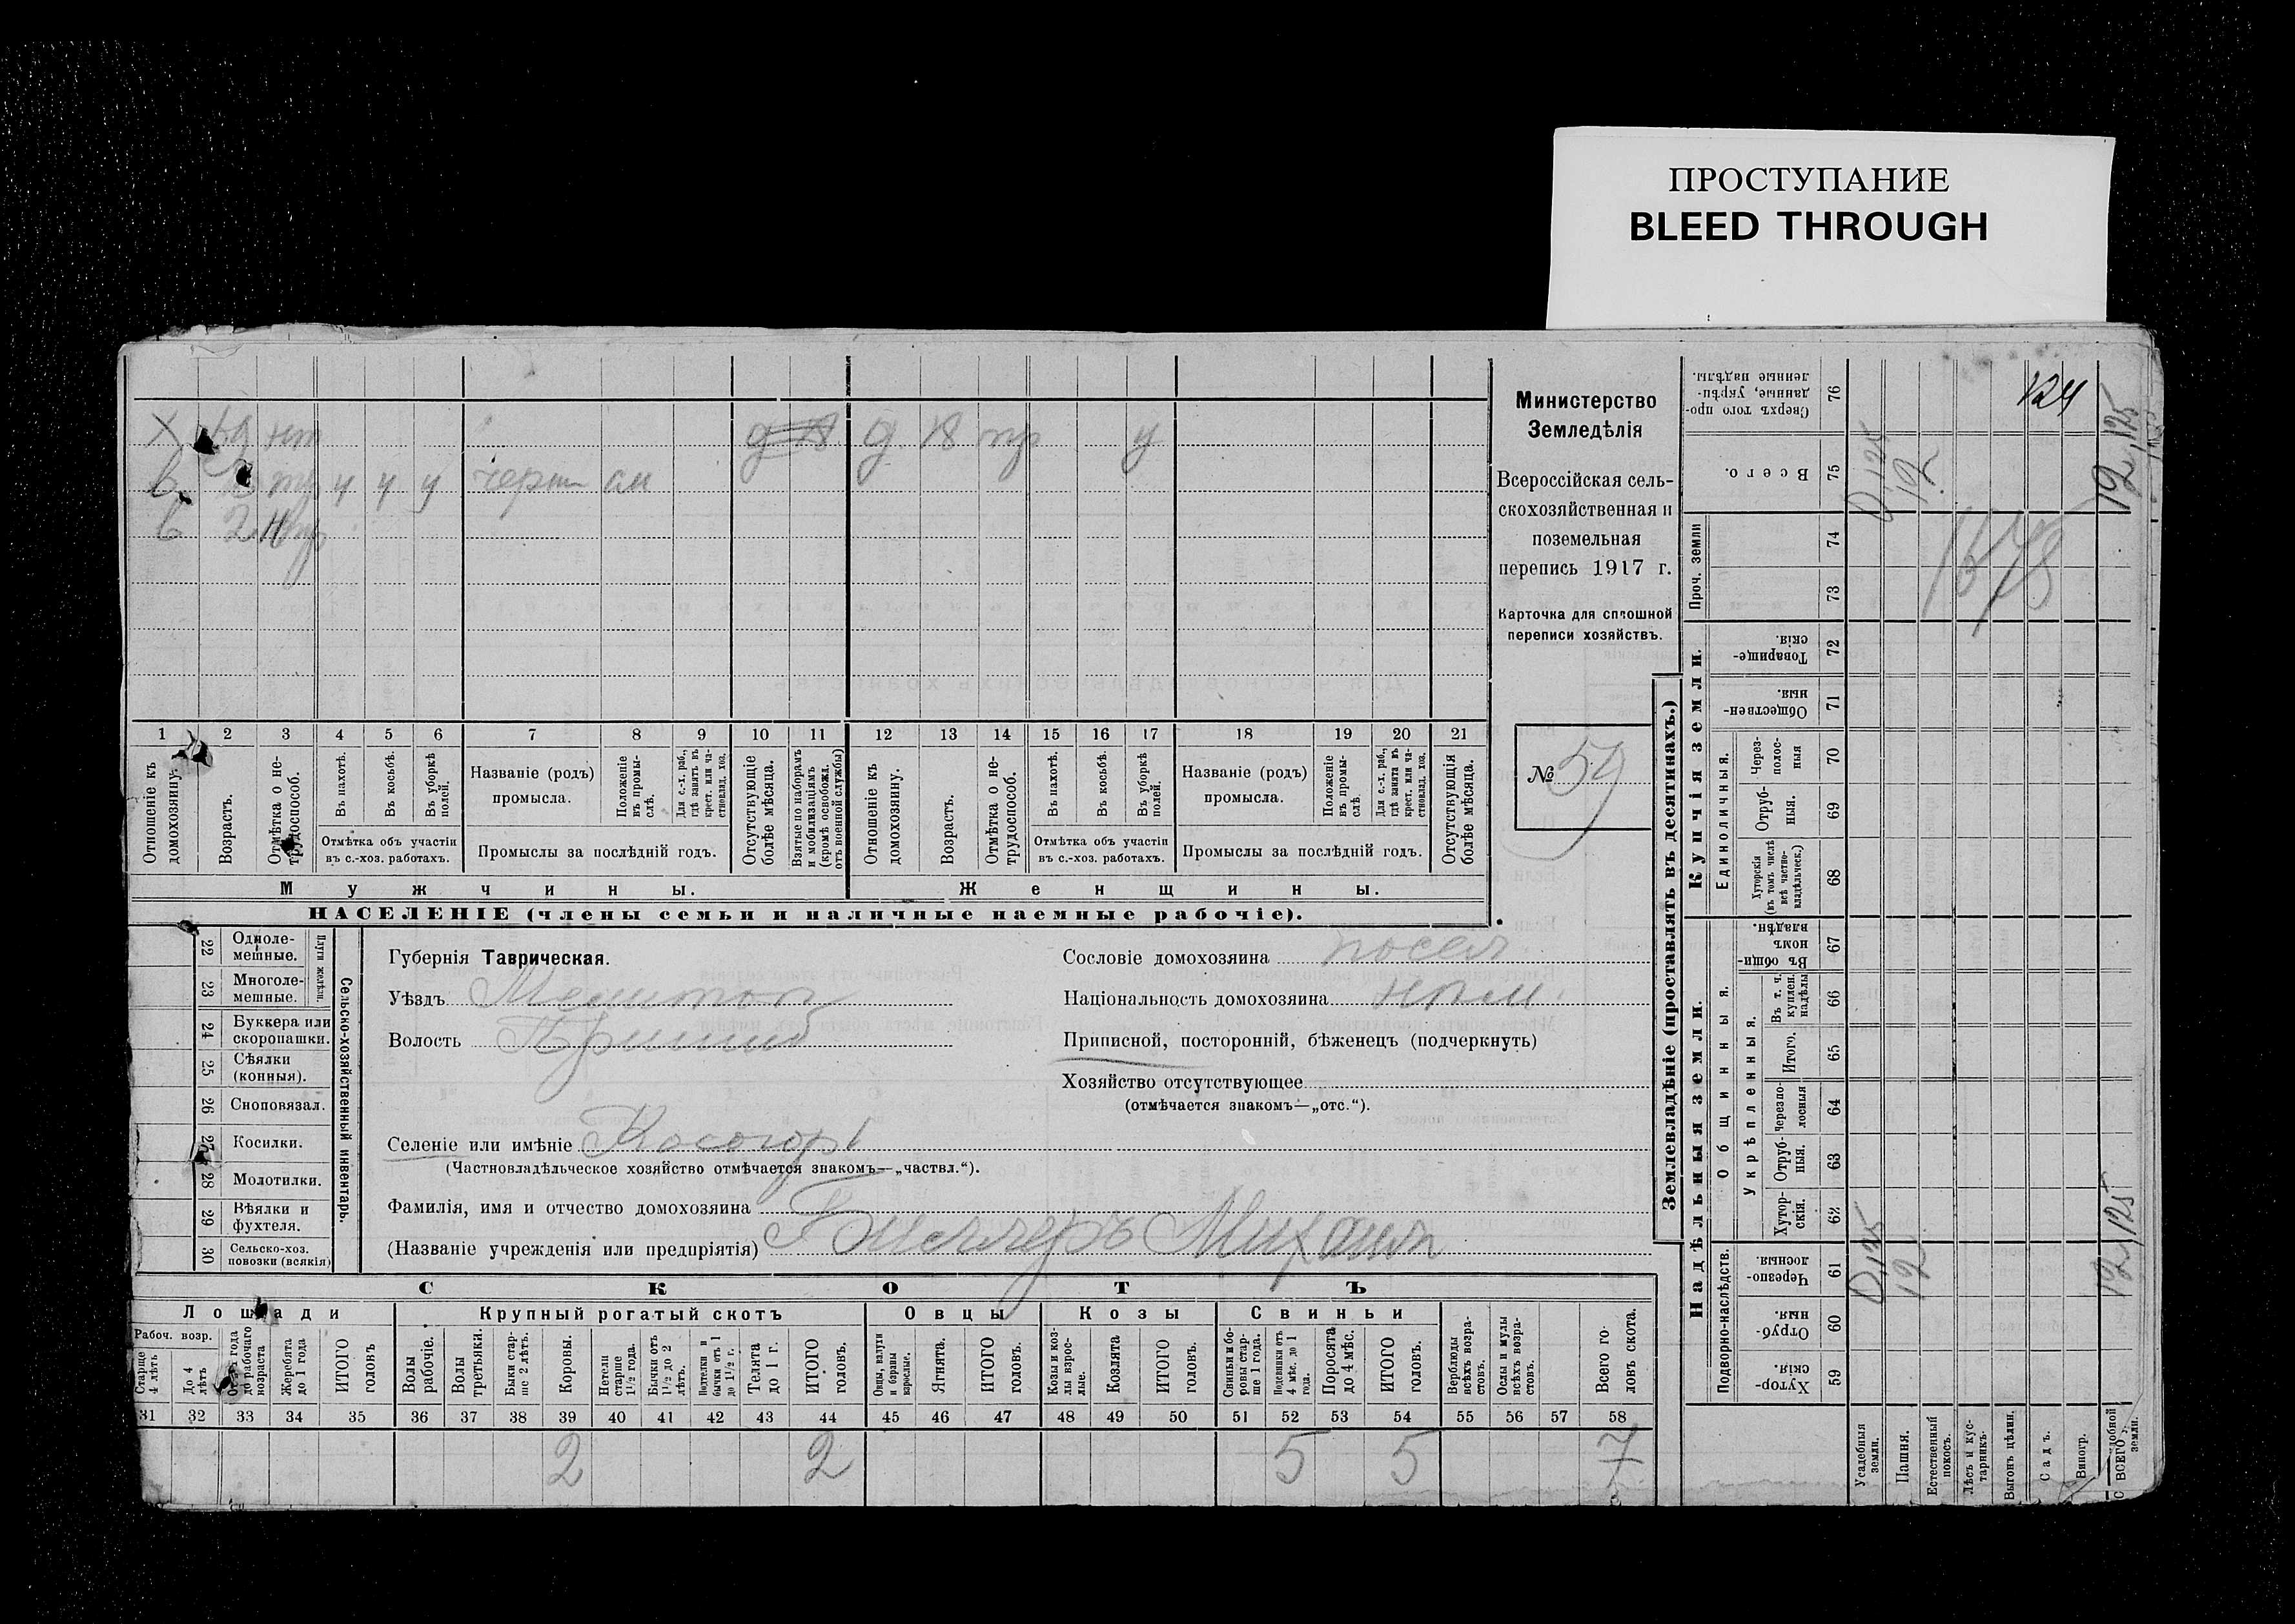 ПРОСТУПАНИЕ
BLEED THROUGH
Министерство
Земледѣлія
Всероссійская сель-
скохозяйственная и
поземельная
перепись 1917 г.
Карточка для сплошной
переписи хозяйствъ.
№ 59
х нт д 18 д 18 тр у
в тр ч ч у черн см
в 2
1 2 3 4 5 6 7 8 9 10 11 12 13 14 15 16 17 18 19 20 21
Отношеніе къ домохозяину.
Возрастъ.
Отмѣтка о не-трудоспособ.
Въ пахотѣ.
Въ косьбѣ.
Въ уборкѣ полей.
Отмѣтка объ участіи въ с.-хоз. работахъ.
Названіе (родъ) промысла.
Положеніе въ промы-слѣ.
Для с.-х. раб., гдѣ занятъ въ крест. или ча-стновлад. хоз.
Промыслы за послѣдній годъ.
Отсутствующіе болѣе мѣсяца.
Взятые по наборамъ и мобилизаціямъ (кромѣ освобожд. отъ военной службы)
Отношеніе къ домохозяину.
Возрастъ.
Отмѣтка о не-трудоспособ.
Въ пахотѣ.
Въ косьбѣ.
Въ уборкѣ полей.
Отмѣтка объ участіи въ с.-хоз. работахъ.
Названіе (родъ) промысла.
Положеніе въ промы-слѣ.
Для с.-х. раб., гдѣ занята въ крест. или ча-стновлад. хоз.
Промыслы за послѣдній годъ.
Отсутствующія болѣе мѣсяца.
Мужчины.
Женщины.
НАСЕЛЕНІЕ (члены семьи и наличные наемные рабочіе).
22 Одноле-мешные.
23 Многоле-мешные.
Плуги желѣзн.
24 Буккера или скоропашки.
25 Сѣялки (конныя).
26 Сноповязал.
27 Косилки.
28 Молотилки.
29 Вѣялки и фухтеля.
30 Сельско-хоз. повозки (всякія)
Сельско-хозяйственный инвентарь.
Губернія Таврическая.
Уѣздъ Мелитоп
Волость Пришиб
Селеніе или имѣніе Косогоръ
(Частновладѣльческое хозяйство отмѣчается знакомъ—„частвл.“).
Фамилія, имя и отчество домохозяина
(Названіе учрежденія или предпріятія) Михаил
Сословіе домохозяина посел.
Національность домохозяина нѣм.
Приписной, посторонній, бѣженецъ (подчеркнуть)
Хозяйство отсутствующее
(отмѣчается знакомъ—„отс.“).
СКОТЪ
Лошади
Рабоч. возр.
Старше 4 лѣтъ
До 4 лѣтъ
Отъ 1 года до рабочаго возраста
Жеребята до 1 года
ИТОГО головъ
Крупный рогатый скотъ
Волы рабочіе.
Волы третьяки.
Быки стар-ше 2 лѣтъ.
Коровы.
Нетели старше 1½ года.
Бычки отъ 1½ до 2 лѣтъ.
Подтелки и бычки отъ 1 до 1½ г.
Телята до 1 г.
ИТОГО головъ.
Овцы
Овцы, валухи и бараны взрослые.
Ягнята.
ИТОГО головъ.
Козы
Козы и коз-лы взрос-лые.
Козлята
ИТОГО головъ.
Свиньи
Свиньи и бо-ровы стар-ше 1 года.
Подсвинки отъ 4 мѣс. до 1 года.
Поросята до 4 мѣс.
ИТОГО головъ.
Верблюды всѣхъ возра-стовъ.
Ослы и мулы всѣхъ возра-стовъ.
Всего го-ловъ скота.
31 32 33 34 35 36 37 38 39 40 41 42 43 44 45 46 47 48 49 50 51 52 53 54 55 56 57 58
2 2 5 5 7
Землевладѣніе (проставлять въ десятинахъ.)
Надѣльныя земли.
Купчія земли.
Проч. земли
Подворно-наслѣдств.
Общинныя.
Укрѣпленныя.
Единоличныя.
Сверхъ того про-данные, укрѣп-ленные надѣлы. 76
Всего. 75 0,125 12 12,125
74
73
1678
124
Товарище-скія. 72
Обществен-ныя. 71
Через-полос-ныя 70
Отруб-ныя. 69
Хуторскія (въ томъ числѣ всѣ частно-владѣльческ.) 68
Въ общи-номъ владѣн. 67
Въ т. ч. куплен. надѣлы 66
Итого. 65
Черезпо-лосныя 64
Отруб-ныя. 63
Хутор-скія. 62
Черезпо-лосныя. 61 0,125 12 12,125
Отруб-ныя. 60
Хутор-скія. 59
Усадебныя земли.
Пашня.
Естественный покосъ.
Лѣсъ и кус-тарникъ.
Выгонъ цѣлин.
Садъ.
Виногр.
ВСЕГО удобной земли.